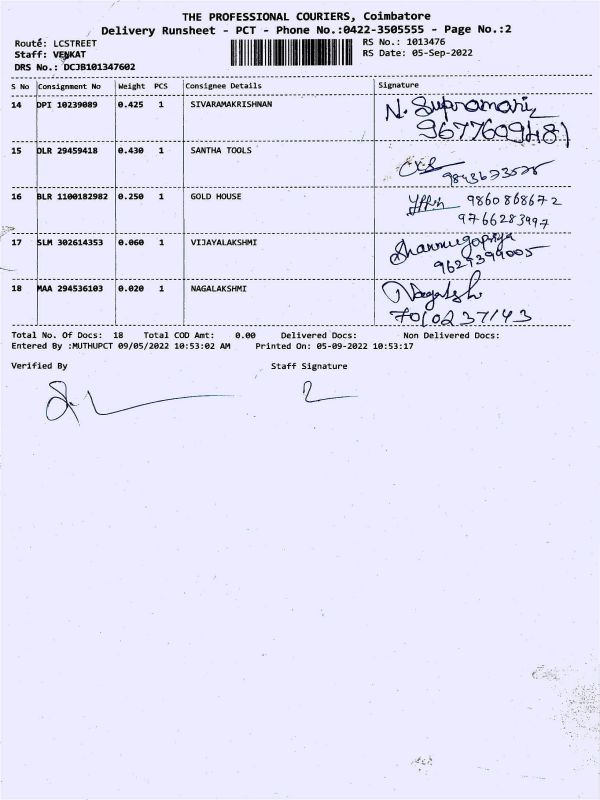 THE PROFESSIONAL COURIERS, Coimbatore
Delivery Runsheet - PCT - Phone No.:0422-3505555 - Page No.:2
Route: LCSTREET
RS No.: 1013476
Staff: VENKAT
RS Date: 05-Sep-2022
DRS No.: DCJB101347602
S No Consignment No Weight PCS Consignee Details Signature
14 DPI 10239089 0.425 1 SIVARAMAKRISHNAN
9677609481
15 DLR 29459418 0.430 1 SANTHA TOOLS
16 BLR 1100182982 0.250 1 GOLD HOUSE 9860868672
9766283997
17 SLM 302614353 0.060 1 VIJAYALAKSHMI Shanmugapriya
9629399005
18 MAA 294536103 0.020 1 NAGALAKSHMI
7010237143
Total No. Of Docs: 18 Total COD Amt: 0.00 Delivered Docs: Non Delivered Docs:
Entered By :MUTHUPCT 09/05/2022 10:53:02 AM Printed On: 05-09-2022 10:53:17
Verified By Staff Signature